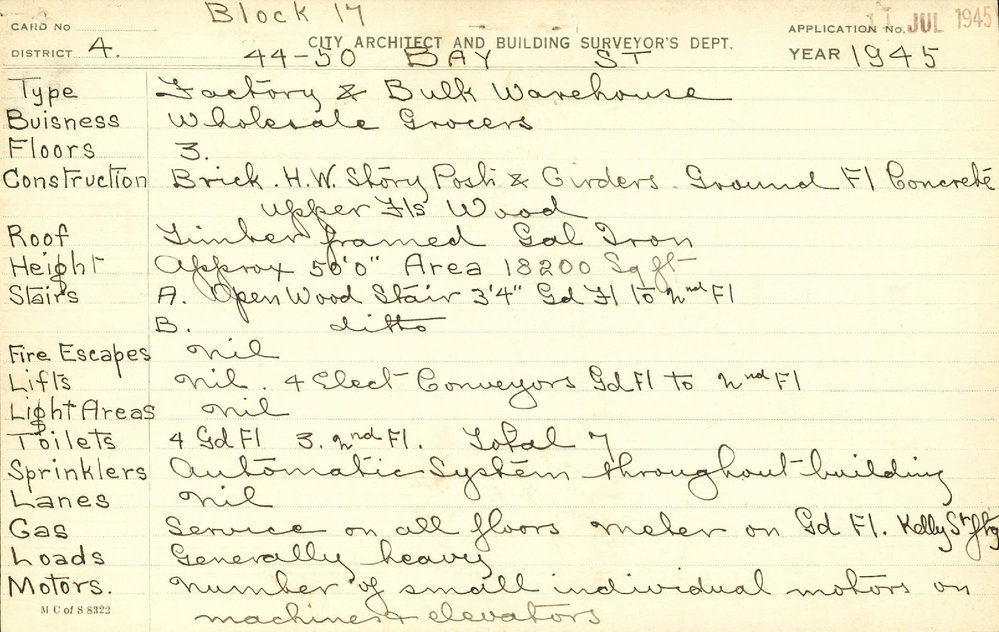 Block 17
CARD No APPLICATION No. 11 JUL 1945
CITY ARCHITECT AND BUILDING SURVEYOR'S DEPT.
DISTRICT 4. 44-50 BAY ST YEAR 1945
Type Factory & Bulk Warehouse
Buisness Wholesale Grocers
Floors 3.
Construction Brick. H.W. Story Posts & Girders. Ground Fl Concrete
upper Fls Wood
Roof Timber framed Gal Iron
Height Approx 50'0" Area 18200 Sq ft
Stairs A. Open Wood Stair 3'4" Gd Fl to 2nd Fl
B. ditto
Fire Escapes Nil
Lifts Nil. 4 Elect Conveyors Gd Fl to 2nd Fl
Light Areas Nil
Toilets 4 Gd Fl 3. 2nd Fl. Total 7
Sprinklers Automatic System throughout building
Lanes Nil
Gas Service on all floors meter on Gd Fl. Kelly St ftg
Loads Generally heavy
Motors. Number of small individual motors on
machines & elevators
M C of S 8322